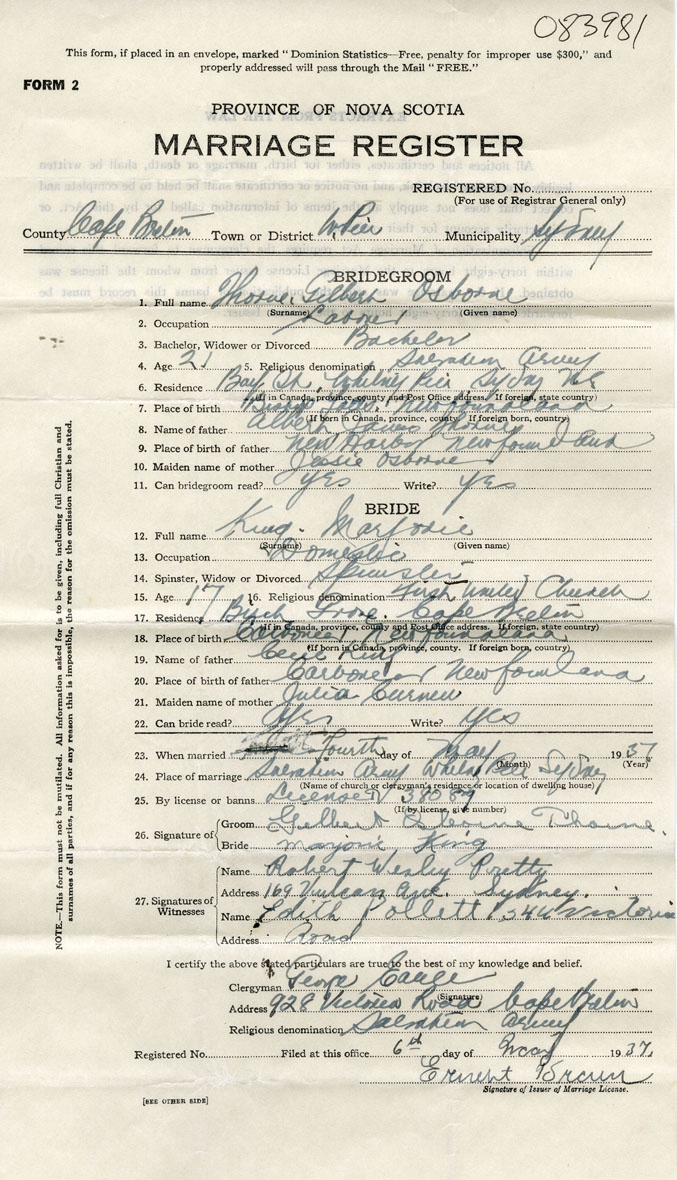 083981
This form, if placed in an envelope, marked "Dominion Statistics—Free, penalty for improper use $300," and
properly addressed will pass through the Mail "FREE."
FORM 2
PROVINCE OF NOVA SCOTIA
MARRIAGE REGISTER
REGISTERED No.
(For use of Registrar General only)
County Cape Breton Town or District W Pier Municipality Sydney
BRIDEGROOM
1. Full name Thorne, Gilbert Osborne
(Surname) (Given name)
2. Occupation Laborer
3. Bachelor, Widower or Divorced Bachelor
4. Age 21 5. Religious denomination Salvation Army
6. Residence Bay St. Whitney Pier Sydney N.S.
(If in Canada, province, county and Post Office address. If foreign, state country)
7. Place of birth Newfoundland
(If born in Canada, province, county. If foreign born, country)
8. Name of father Albert Thorne
9. Place of birth of father New Harbor Newfoundland
10. Maiden name of mother Jessie Osborne
11. Can bridegroom read? yes Write? yes
BRIDE
12. Full name King. Marjorie
(Surname) (Given name)
13. Occupation Domestic
14. Spinster, Widow or Divorced Spinster
15. Age 17 16. Religious denomination First United Church
17. Residence Birch Grove. Cape Breton
(If in Canada, province, county and Post Office address. If foreign, state country)
18. Place of birth Carbonear Newfoundland
(If born in Canada, province, county. If foreign born, country)
19. Name of father Cecil King
20. Place of birth of father Carbonear Newfoundland
21. Maiden name of mother Julia Curnew
22. Can bride read? Yes Write? yes
23. When married Fourth day of May 1937
(Month) (Year)
24. Place of marriage Salvation Army Whitney Pier Sydney
(Name of church or clergyman's residence or location of dwelling house)
25. By license or banns License 38089
(If by license, give number)
26. Signature of Groom Gilbert Osborne Thorne.
Bride Marjorie King
27. Signatures of Witnesses
Name Robert Wesley Pretty
Address 169 Vulcan Ave. Sydney.
Name Edith Pollett 1344 Victoria
Address Road
I certify the above stated particulars are true to the best of my knowledge and belief.
Clergyman George Earle
(Signature)
Address 928 Victoria Road Cape Breton
Religious denomination Salvation Army
Registered No. Filed at this office 6th day of May 1937.
Ernest Brown
Signature of Issuer of Marriage License.
[SEE OTHER SIDE]
NOTE.—This form must not be mutilated. All information asked for is to be given, including full Christian and
surnames of all parties, and if for any reason this is impossible, the reason for the omission must be stated.